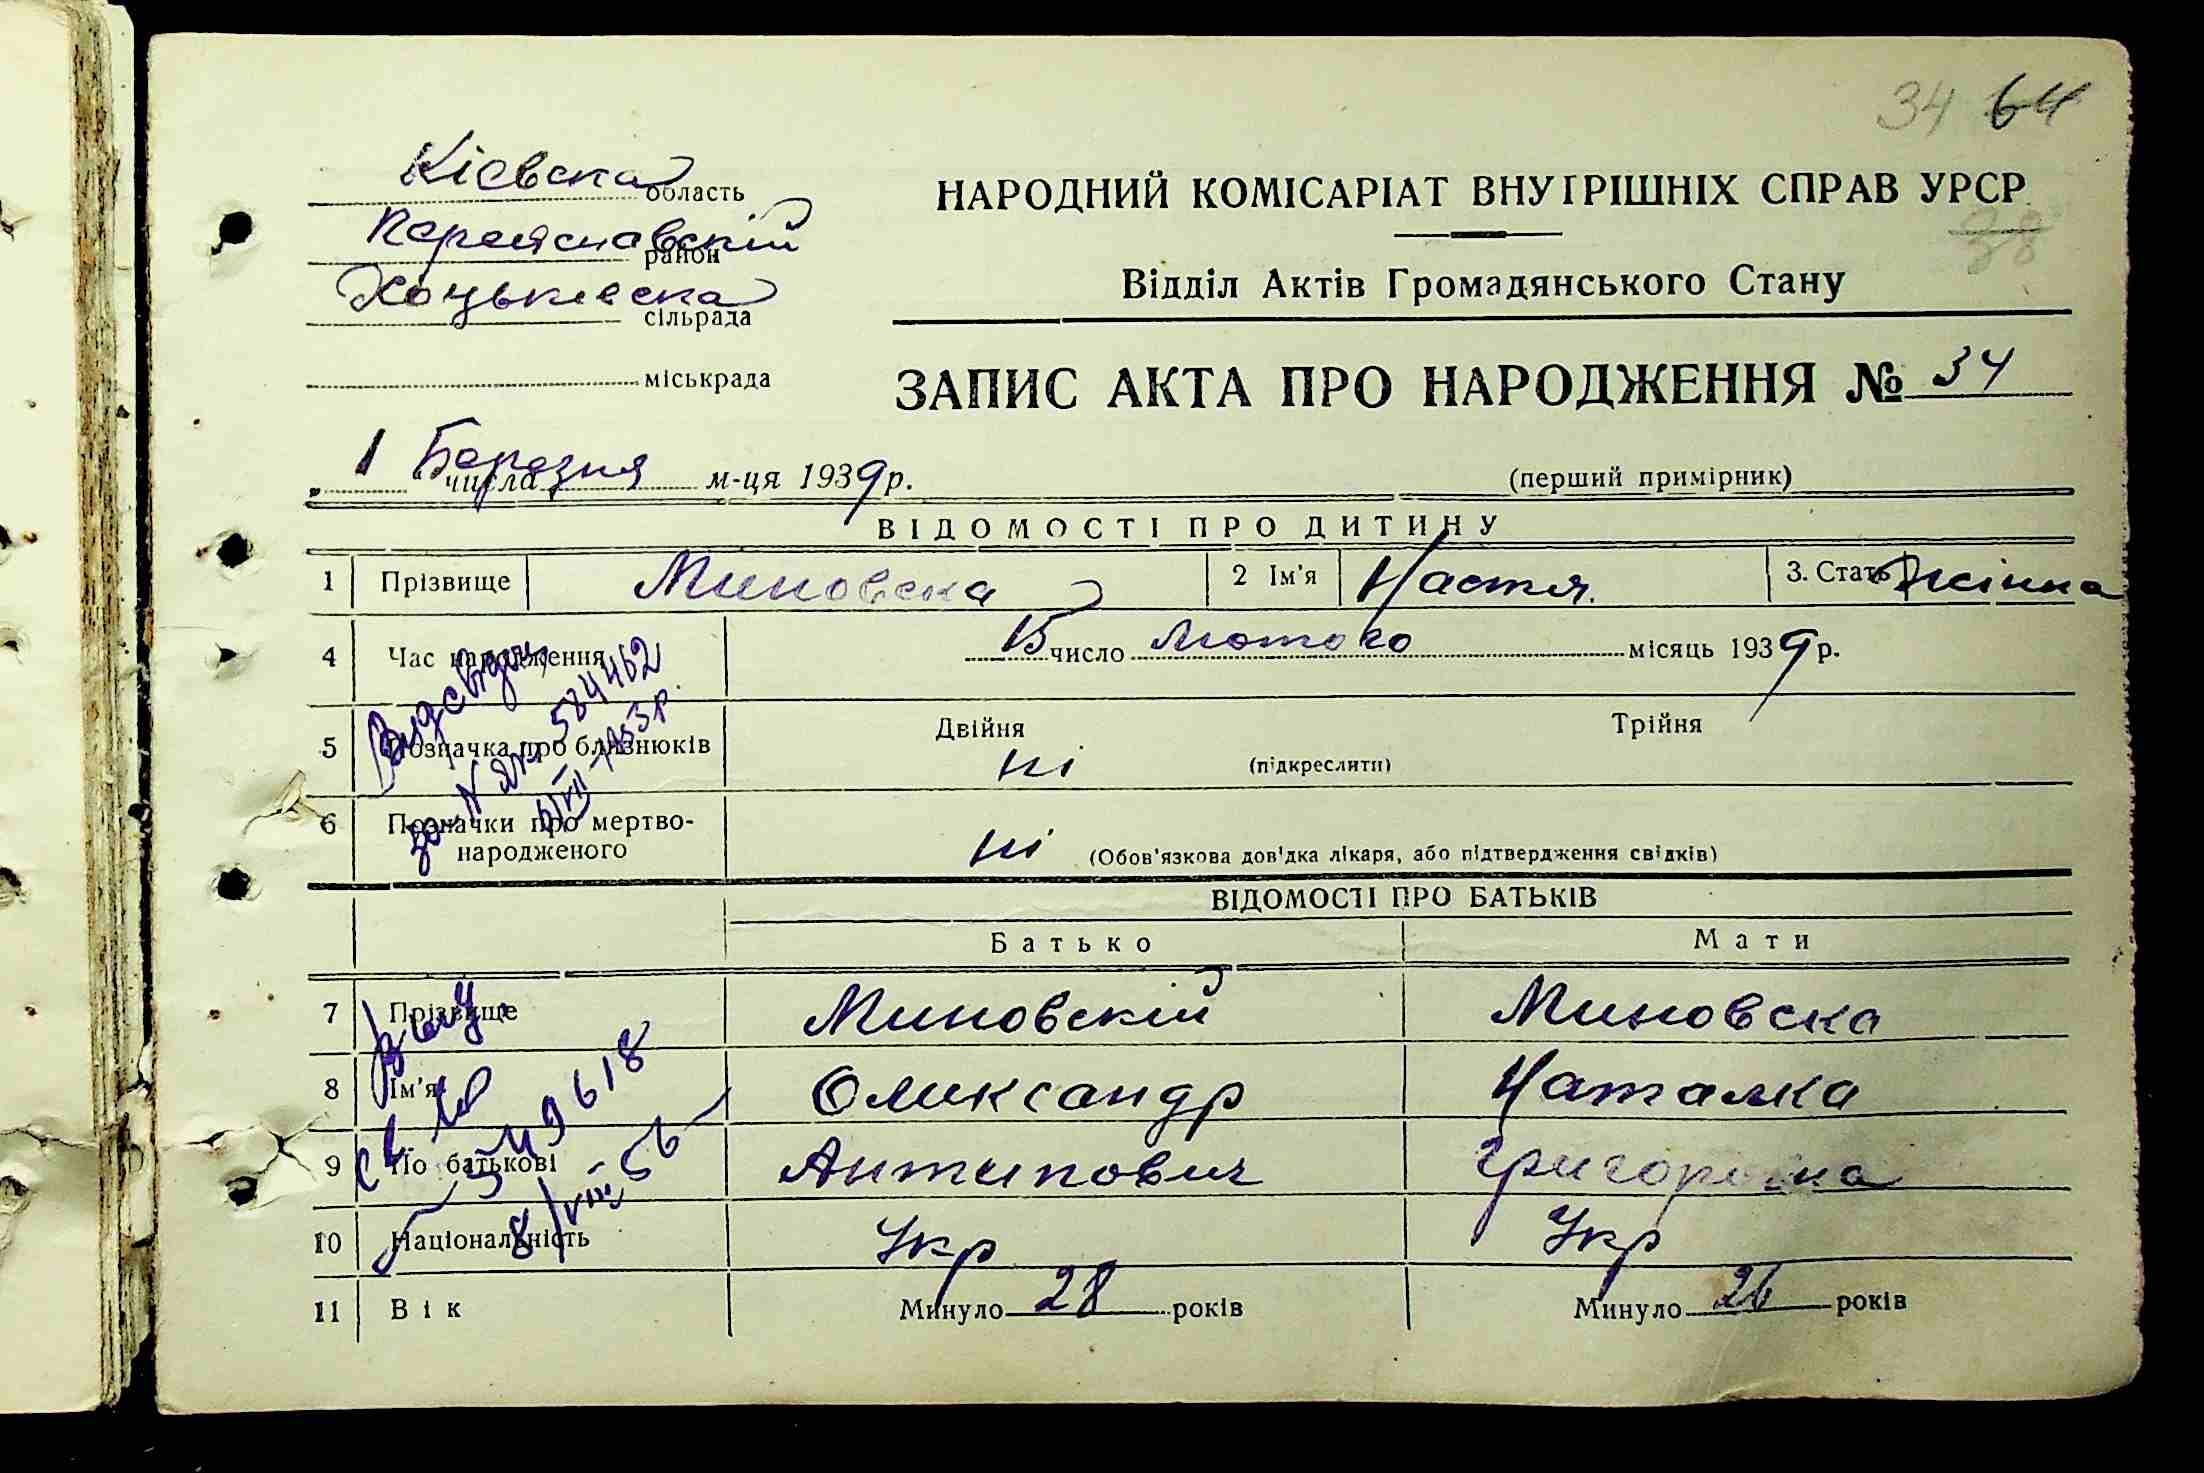 34 64
Кієвска область
Переяславскій район
Хоцьківска сільрада
міськрада
НАРОДНИЙ КОМІСАРІАТ ВНУТРІШНІХ СПРАВ УРСР
38
Відділ Актів Громадянського Стану
ЗАПИС АКТА ПРО НАРОДЖЕННЯ № 34
1 Березня числа м-ця 1939 р.
(перший примірник)
ВІДОМОСТІ ПРО ДИТИНУ
1 Прізвище Миновска 2 Ім'я Настя. 3. Стать жінна
4 Час народження 15 число Лютого місяць 1939 р.
5 Позначка про близнюків Двійня Трійня
ні (підкреслити)
6 Позначки про мертво-
народженого ні (Обов'язкова довідка лікаря, або підтвердження свідків)
ВІДОМОСТІ ПРО БАТЬКІВ
Батько Мати
7 Прізвище Миновскій Миновска
8 Ім'я Оликсандр Наталка
9 По батькові Антипович Григоровна
10 Національність Укр Укр
11 Вік Минуло 28 років Минуло 26 років
584462
549618
8/VIII-56